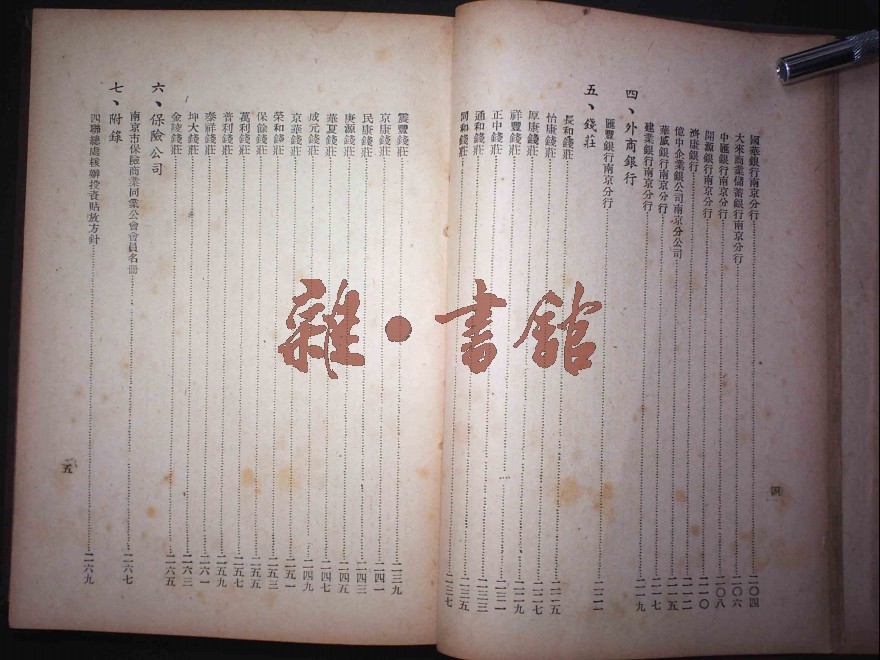 國華銀行南京分行……二〇四
大來商業儲蓄銀行南京分行……二〇六
中匯銀行南京分行……二〇八
開源銀行南京分行……二一〇
濟康銀行……二一二
億中企業銀公司南京分公司……二一五
華威銀行南京分行……二一七
建業銀行南京分行……二一九
四、外商銀行
匯豐銀行南京分行……二二一
五、錢莊
長和錢莊……二二五
怡康錢莊……二二七
厚康錢莊……二二九
祥豐錢莊……二三一
正中錢莊……二三三
通和錢莊……二三五
同和錢莊……二三七
四
震豐錢莊……二三九
京康錢莊……二四一
民康錢莊……二四三
庚源錢莊……二四五
華夏錢莊……二四七
成元錢莊……二四九
京華錢莊……二五一
榮和錢莊……二五三
保餘錢莊……二五五
萬利錢莊……二五七
普利錢莊……二五九
泰祥錢莊……二六一
坤大錢莊……二六三
金陵錢莊……二六五
六、保險公司
南京市保險商業同業公會會員名冊……二六七
七、附錄
四聯總處核辦投資貼放方針……二六九
五
雜・書館